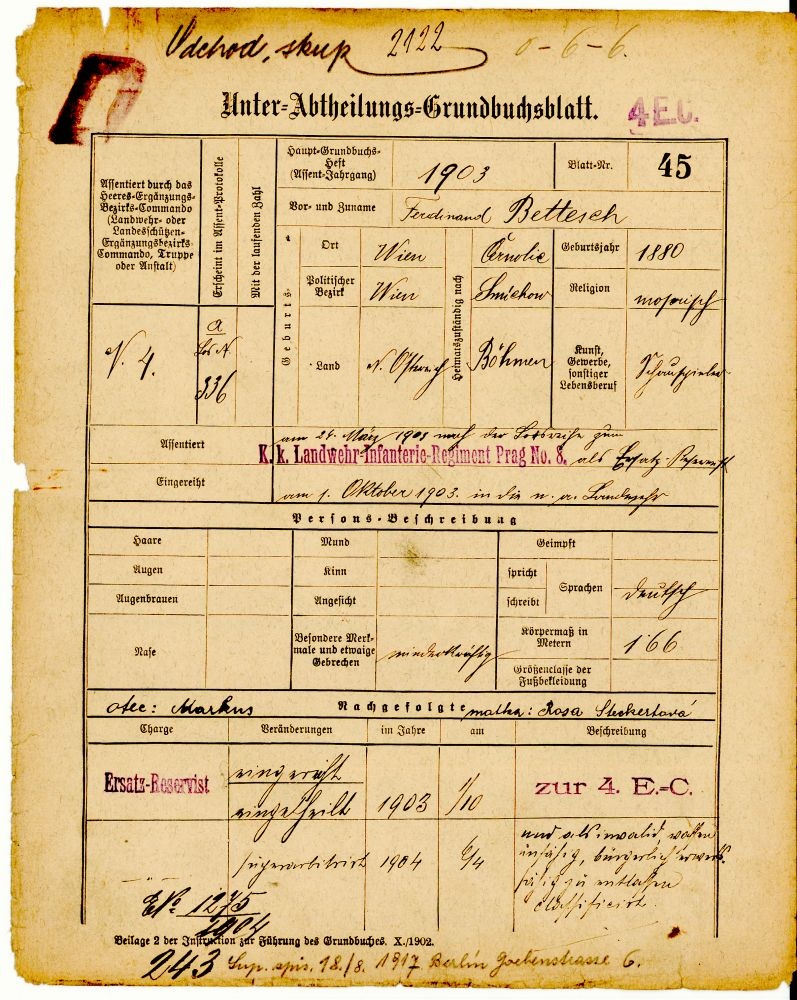 Odchod, skup 2122 0-6-6.
Unter-Abtheilungs-Grundbuchsblatt.
4 E.C.
Assentiert durch das
Heeres-Ergänzungs-
Bezirks-Commando
(Landwehr- oder
Landesschützen-
Ergänzungsbezirks-
Commando, Truppe
oder Anstalt)
Erscheint im Assent-Protokolle
Mit der laufenden Zahl
N. 4.
a
Los N
336
Haupt-Grundbuchs-
Heft
(Assent-Jahrgang)
1903
Blatt-Nr. 45
Vor- und Zuname Ferdinand Bettesch
Geburts-
Ort Wien
Politischer
Bezirk Wien
Land N. Österreich
Heimatszuständig nach
Černolic
Smichow
Böhmen
Geburtsjahr 1880
Religion mosaisch
Kunst,
Gewerbe,
sonstiger
Lebensberuf
Schauspieler
Assentiert am 24. März 1903 nach der Losreihe zum
K. k. Landwehr-Infanterie-Regiment Prag No. 8. als Ersatz-Reservist
Eingereiht am 1. Oktober 1903. in die n. a. Landwehr
Persons-Beschreibung
Haare
Augen
Augenbrauen
Nase
Mund
Kinn
Angesicht
Besondere Merk-
male und etwaige
Gebrechen
minderkräftig
Geimpft
spricht
schreibt
Sprachen deutsch
Körpermaß in
Metern 1·66
Größenclasse der
Fußbekleidung
otec: Markus Nachgefolgte matka: Rosa Steckertová
Charge Veränderungen im Jahre am Beschreibung
Ersatz-Reservist eingereiht
eingetheilt 1903 1/10 zur 4. E.-C.
superarbitrirt 1904 6/4 und als invalid, waffen
unfähig, bürgerlich erwerbs-
fähig zu entlassen
classificirt.
E Nº 1275
1904
Beilage 2 der Instruction zur Führung des Grundbuches. X./1902.
243 Sup. spis. 18./8. 1917 Berlin Goebenstrasse 6.